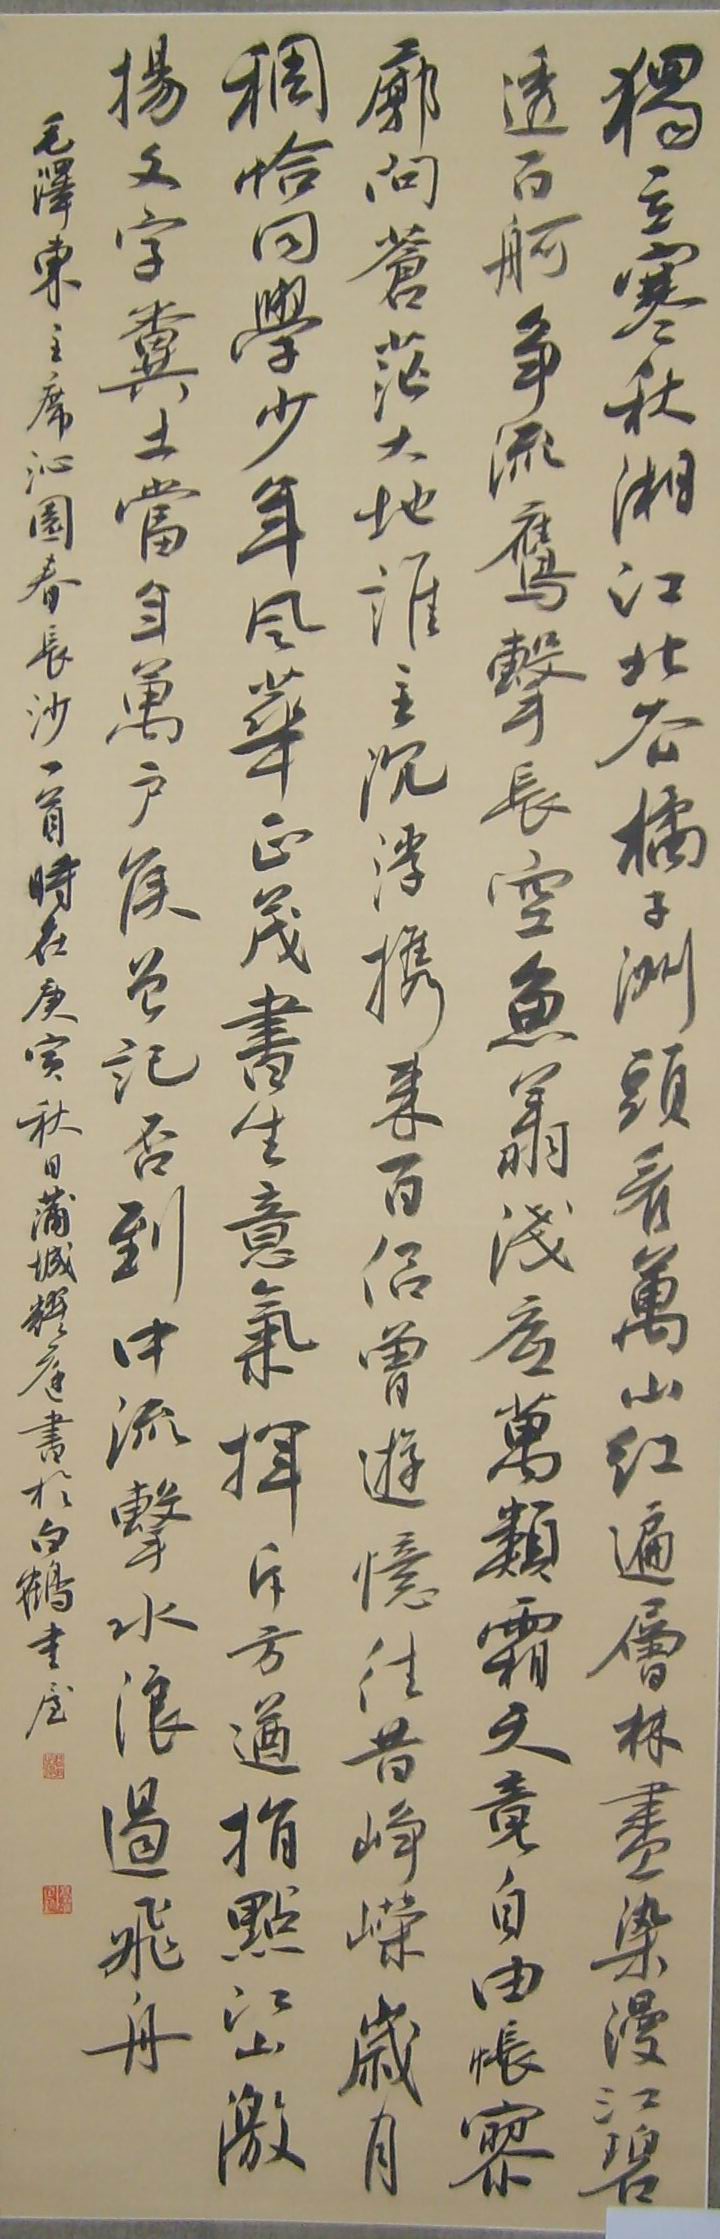 獨立寒秋湘江北去橘子洲頭看萬山紅遍層林盡染漫江碧
透百舸争流鷹擊長空魚翔淺底萬類霜天竟自由悵寥
廓問蒼茫大地誰主沉浮携來百侣曾遊憶往昔崢嶸歲月
稠恰同學少年風華正茂書生意氣揮斥方遒指點江山激
揚文字糞土當年萬户侯曾記否到中流擊水浪遏飛舟
毛澤東主席沁園春長沙一首時在庚寅秋日蒲城耀庭書於白鶴書屋